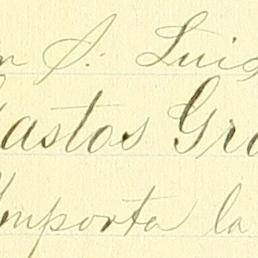 n S. Luis
Gastos Gra
Importa la